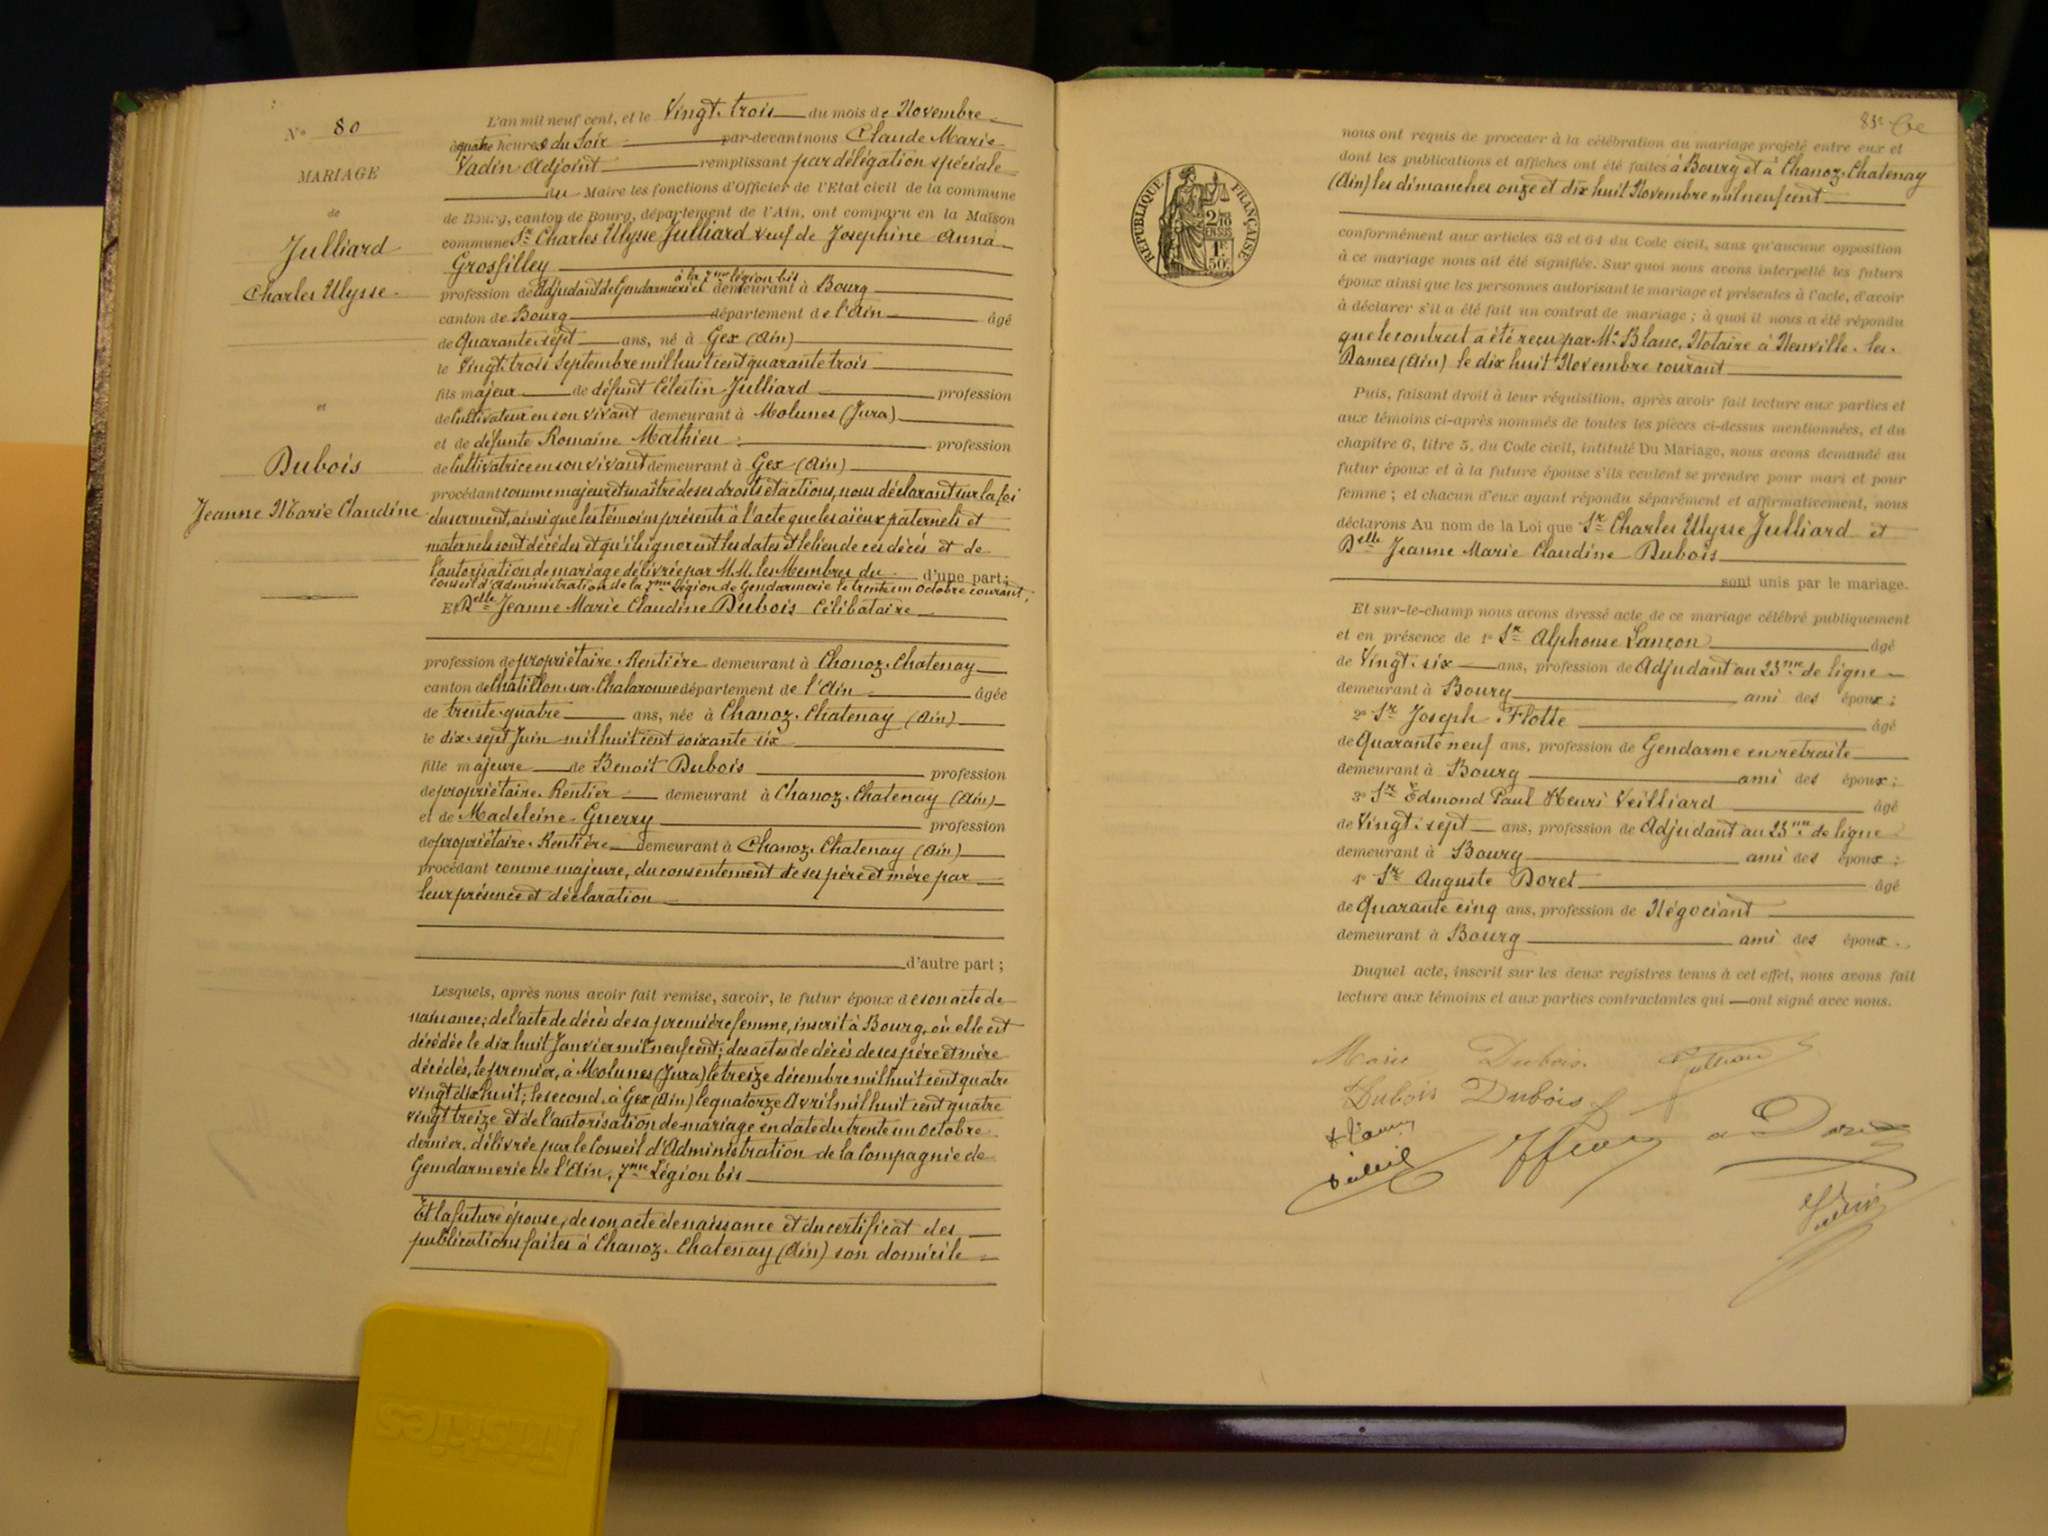 N° 80
MARIAGE
de
Julliard
Charles Ulysse
et
Dubois
Jeanne Marie Claudine
L'an mil neuf cent, et le Vingt-trois du mois de Novembre
à quatre heures du Soir par-devant nous Claude Marie
Vadin Adjoint remplissant par délégation spéciale
du Maire les fonctions d'Officier de l'Etat civil de la commune
de Bourg, canton de Bourg, département de l'Ain, ont comparu en la Maison
commune Sr Charles Ulysse Julliard veuf de Josephine Anna
Grosfilley
à la 7me légion bis
profession de Adjudant de Gendarmerie demeurant à Bourg
canton de Bourg département de l'Ain âgé
de Quarante-sept ans, né à Gex (Ain)
le Vingt-trois Septembre mil huit cent quarante trois
fils majeur de défunt Célestin Julliard profession
de Cultivateur en son vivant demeurant à Molunes (Jura)
et de défunte Romaine Mathieu profession
de Cultivatrice en son vivant demeurant à Gex (Ain)
procédant comme majeur et maître de ses droits et actions, nous déclarant sur la foi
du serment, ainsi que les témoins présents à l'acte que les aïeux paternels et
maternels sont décédés et qu'ils ignorent les dates et le lieu de ces décès et de
l'autorisation de mariage délivrée par M.M. les Membres du d'une part ;
Conseil d'Administration de la 7me Légion de Gendarmerie le trente un Octobre courant,
Et Delle Jeanne Marie Claudine Dubois Célibataire
profession de propriétaire-Rentière demeurant à Chanoz-Chatenay
canton de Châtillon-sur-Chalaronne département de l'Ain âgée
de trente-quatre ans, née à Chanoz-Chatenay (Ain)
le dix-sept Juin mil huit cent soixante six
fille majeure de Benoit Dubois profession
de propriétaire-Rentier demeurant à Chanoz-Chatenay (Ain)
et de Madeleine Guerry profession
de propriétaire-Rentière demeurant à Chanoz-Chatenay (Ain)
procédant comme majeure, du consentement de ses père et mère par
leur présence et déclaration
d'autre part ;
Lesquels, après nous avoir fait remise, savoir, le futur époux de son acte de
naissance ; de l'acte de décès de sa première femme, inscrit à Bourg, où elle est
décédée le dix huit Janvier mil neuf cent ; des actes de décès de ses père et mère
décédés, le premier, à Molunes (Jura) le treize décembre mil huit cent quatre
vingt dix huit ; le second, à Gex (Ain) le quatorze Avril mil huit cent quatre
vingt treize et de l'autorisation de mariage en date du trente un Octobre
dernier, délivrée par le Conseil d'Administration de la Compagnie de
Gendarmerie de l'Ain, 7me Légion bis
Et la future épouse, de son acte de naissance et du certificat des
publications faites à Chanoz-Chatenay (Ain) son domicile
REPUBLIQUE FRANÇAISE
2/10
EN SUS
1F
50c
nous ont requis de procéder à la célébration au mariage projeté entre eux et
dont les publications et affiches ont été faites à Bourg et à Chanoz-Chatenay
(Ain) les dimanches onze et dix huit Novembre mil neuf cent
conformément aux articles 63 et 64 du Code civil, sans qu'aucune opposition
à ce mariage nous ait été signifiée. Sur quoi nous avons interpellé les futurs
époux ainsi que les personnes autorisant le mariage et présentes à l'acte, d'avoir
à déclarer s'il a été fait un contrat de mariage ; à quoi il nous a été répondu
que le contrat a été reçu par Me Blanc, Notaire à Neuville-les-
Dames (Ain) le dix huit Novembre courant
Puis, faisant droit à leur réquisition, après avoir fait lecture aux parties et
aux témoins ci-après nommés de toutes les pièces ci-dessus mentionnées, et du
chapitre 6, titre 5, du Code civil, intitulé Du Mariage, nous avons demandé au
futur époux et à la future épouse s'ils veulent se prendre pour mari et pour
femme ; et chacun d'eux ayant répondu séparément et affirmativement, nous
déclarons Au nom de la Loi que Sr Charles Ulysse Julliard et
Delle Jeanne Marie Claudine Dubois
sont unis par le mariage.
Et sur-le-champ nous avons dressé acte de ce mariage célébré publiquement
et en présence de 1° Sr Alphonse Lançon âgé
de Vingt-six ans, profession de Adjudant au 23me de ligne
demeurant à Bourg ami des époux ;
2° Sr Joseph Flotte âgé
de Quarante neuf ans, profession de Gendarme en retraite
demeurant à Bourg ami des époux ;
3° Sr Edmond Paul Henri Veilliard âgé
de Vingt-sept ans, profession de Adjudant au 23me de ligne
demeurant à Bourg ami des époux ;
4° Sr Auguste Doret âgé
de Quarante cinq ans, profession de Négociant
demeurant à Bourg ami des époux.
Duquel acte, inscrit sur les deux registres tenus à cet effet, nous avons fait
lecture aux témoins et aux parties contractantes qui ont signé avec nous.
Marie Dubois
Dubois Dubois